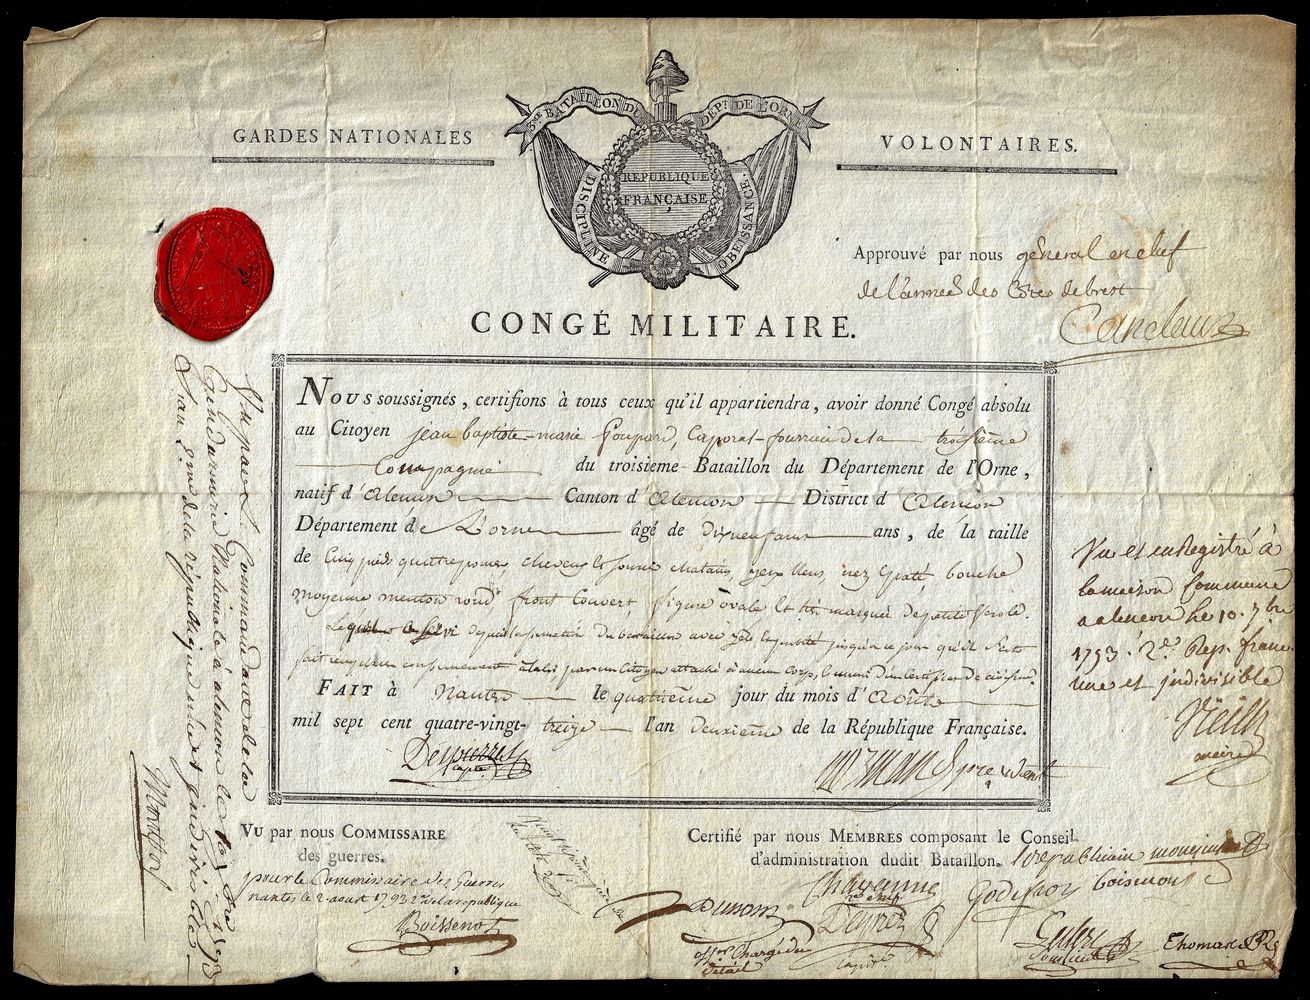 3me BATAILLON DU DÉPT DE L'ORNE
GARDES NATIONALES
VOLONTAIRES.
RÉPUBLIQUE
FRANÇAISE
DISCIPLINE
OBÉISSANCE.
Approuvé par nous général en chef
de l'armée des Côtes de brest
Canclaux
CONGÉ MILITAIRE.
Nous soussignés, certifions à tous ceux qu'il appartiendra, avoir donné Congé absolu
au Citoyen jean baptiste-marie poupard, Caporal-fourrier de la troisième
Compagnie du troisieme Bataillon du Département de l'Orne,
natif d'alencon Canton d'alencon District d'alencon
Département de L'orne âgé de dixneuf ans, de la taille
de Cinq pieds quatre pouces, cheveux et sourcils chatains, yeux bleus, nez épaté bouche
moyenne menton rond front couvert figure ovale et très marquée de petite verole.
Lequel a servi depuis la formation du bataillon avec zèle jusqu'à ce jour qu'il s'est
fait remplacer par un Citoyen attaché à aucun Corps,
FAIT à nantes le quatrieme jour du mois d'Août
mil sept cent quatre-vingt-treize l'an deuxieme de la République Française.
Desperres
capte
président
Vu et enregistré à
la maison Commune
a alencon le 10. 7bre
1793. 2e. Rep. franc.
une et jndivisible
maire
Vu par Le Commandant de la
Gendarmerie Nationale à alencon le 1793
L'an 2eme de la république une et jndivisible
VU par nous COMMISSAIRE
des guerres.
pour le Commissaire des Guerres
nantes le 2 aout 1793 2e de la republique
Boissenot
Certifié par nous MEMBRES composant le Conseil
d'administration dudit Bataillon.
Chayenne
Godefroy
boismont
Dumont
offer Chargé du
détail
capit.
Thomas